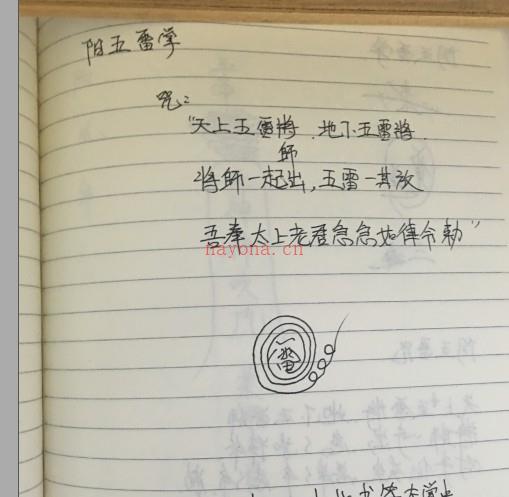 阳五雷掌
咒:
"天上五雷将、地下五雷将、
師
将師一起出,五雷一其放
吾奉太上老君急急如律令勅"
nayona.cn
雷